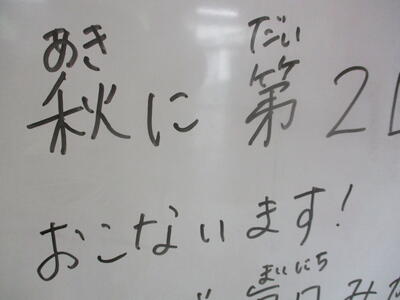 あき だい
秋に 第2
おこないます!
まいにち
み